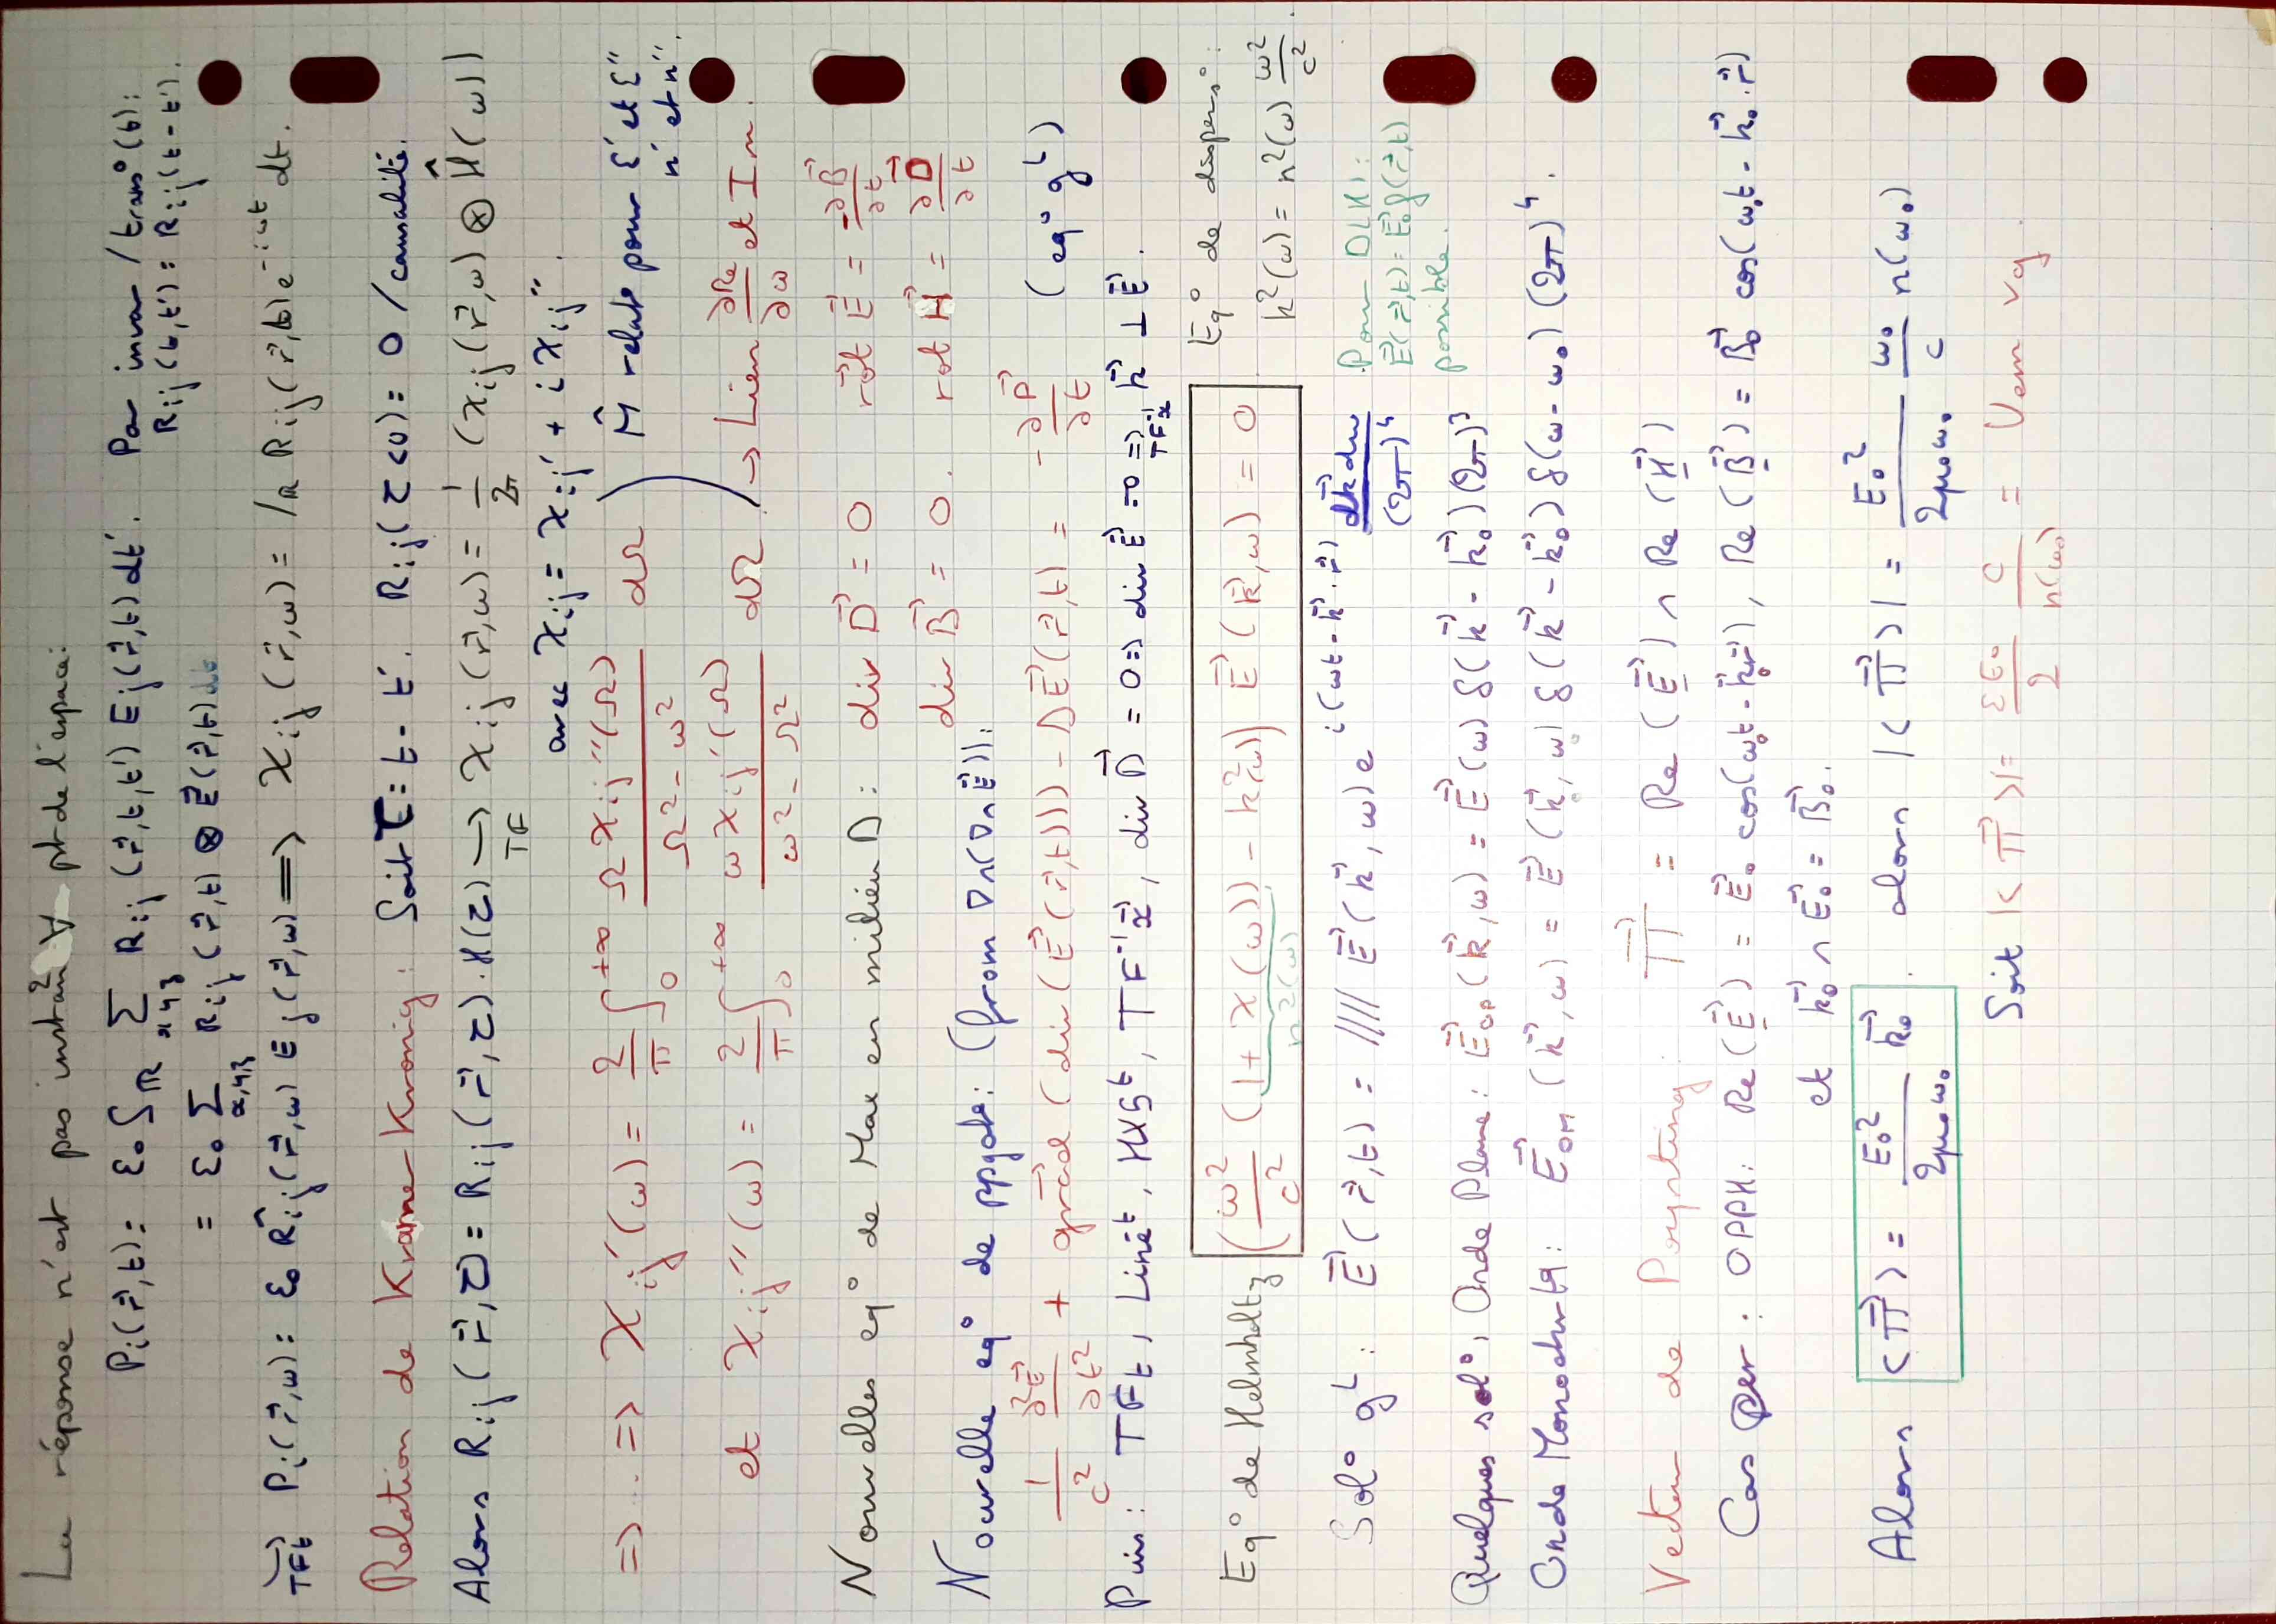 La réponse n'est pas instan^2 ∀ pt de l'espace:
P_i(r⃗,t) = ε₀ ∫_ℝ Σ_{x,y,z} R_ij(r⃗,t,t') E_j(r⃗,t) dt'. Par invar / trans°(t):
= ε₀ Σ_{x,y,z} R_ij(r⃗,t) ⊗ E⃗(r⃗,t) dt R_ij(t,t') = R_ij(t-t').
TFt P_i(r⃗,ω) = ε₀ R̂_ij(r⃗,ω) E_j(r⃗,ω) ⟹ χ_ij(r⃗,ω) = ∫_ℝ R_ij(r⃗,t) e^{-iωt} dt.
Relation de Krame-Kronig: Soit τ = t - t'. R_ij(τ<0) = 0 / causalité.
Alors R_ij(r⃗,τ) = R_ij(r⃗,τ).H(τ) →_{TF} χ_ij(r⃗,ω) = 1/2π (χ_ij(r⃗,ω) ⊗ Ĥ(ω))
avec χ_ij = χ_ij' + i χ_ij''.
⟹ ... ⟹ χ_ij'(ω) = 2/π ∫_0^{+∞} Ω χ_ij''(Ω) / (Ω² - ω²) dΩ
M̂ relat° pour ε' et ε''
n' et n''.
et χ_ij''(ω) = 2/π ∫_0^{+∞} ω χ_ij'(Ω) / (ω² - Ω²) dΩ. → Lien ∂Re/∂ω et Im.
Nouvelles eq° de Max en milieu D: div D⃗ = 0 rot E⃗ = -∂B⃗/∂t
div B⃗ = 0. rot H⃗ = ∂D⃗/∂t
Nouvelle eq° de ppgat°: (from ∇∧(∇∧E⃗)):
1/c² ∂²E⃗/∂t² + grad(div(E⃗(r⃗,t))) - ΔE⃗(r⃗,t) = -∂P⃗/∂t (eq° gᴸ)
Puis: TFt, Linét, HXSt, TF⁻¹x⃗, div D⃗ = 0 ⟹ div E⃗ = 0 ⟹_{TF⁻¹x} k⃗ ⊥ E⃗.
Eq° de Helmholtz (ω²/c² (1 + χ(ω)) - k²(ω)) E⃗(k⃗,ω) = 0 Eq° de dispers°:
n²(ω) k²(ω) = n²(ω) ω²/c².
Sol° gᴸ: E⃗(r⃗,t) = ∫∫∫∫ E⃗(k⃗,ω) e^{i(ωt-k⃗.r⃗)} dk⃗dω/(2π)⁴ Pour DLHI:
E⃗(r⃗,t) = E⃗₀ g(r⃗,t)
possible.
Quelques sol°, Onde Plane: E⃗_OP(k⃗,ω) = E⃗(ω) δ(k⃗ - k⃗₀)(2π)³
Onde Monochrtq: E⃗_OM(k⃗,ω) = E⃗(k⃗,ω) δ(k⃗ - k⃗₀) δ(ω - ω₀) (2π)⁴.
Vecteur de Poynting: Π⃗ = Re(E⃗) ∧ Re(H⃗)
Cas Per. OPPH: Re(E⃗) = E⃗₀ cos(ω₀t - k⃗₀r⃗), Re(B⃗) = B⃗₀ cos(ω₀t - k⃗₀.r⃗)
et k⃗₀ ∧ E⃗₀ = B⃗₀.
Alors <Π⃗> = E₀²/2μ₀ω₀ k⃗₀. alors |<Π⃗>| = E₀²/2μ₀ω₀ ω₀/c n(ω₀)
Soit |<Π⃗>| = εE₀/2 c/n(ω₀) = Uem vg.